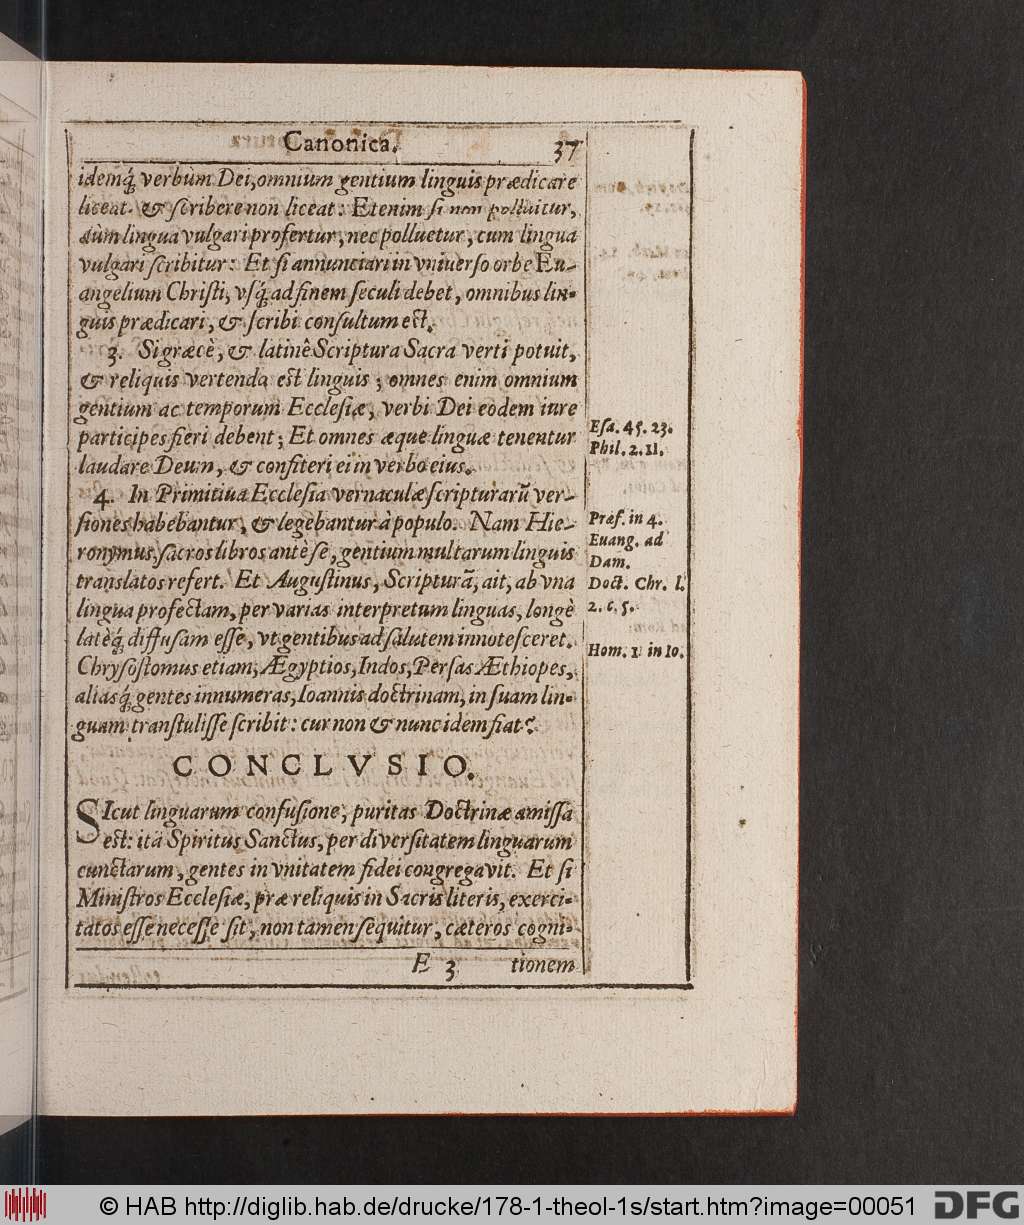 Canonica. 37
idemq́; verbum Dei, omnium gentium linguis prædicare
liceat & ſcribere non liceat: Etenim ſi non polluitur,
dum lingua vulgari profertur, nec polluetur, cum lingua
vulgari ſcribitur: Et ſi annunciari in vniuerſo orbe Eu-
angelium Chriſti, vſq́; ad finem ſeculi debet, omnibus lin-
guis prædicari, & ſcribi conſultum eſt.
3. Si græcè, & latinè Scriptura Sacra verti potuit,
& reliquis vertenda eſt linguis; omnes enim omnium
gentium ac temporum Eccleſiæ, verbi Dei eodem iure
participes fieri debent; Et omnes æque linguæ tenentur
laudare Deum, & confiteri ei in verbo eius.
Eſa. 45. 23.
Phil. 2. 11.
4. In Primitiua Eccleſia vernaculæ ſcripturarũ ver-
ſiones habebantur, & legebantur à populo. Nam Hie-
ronymus, ſacros libros antè ſe, gentium multarum linguis
translatos refert. Et Auguſtinus, Scripturã, ait, ab vna
lingua profectam, per varias interpretum linguas, longè
latèq́; diffuſam eſſe, vt gentibus ad ſalutem innoteſceret.
Chryſoſtomus etiam, Ægyptios, Indos, Perſas Æthiopes,
aliasq́; gentes innumeras, Ioannis doctrinam, in ſuam lin-
guam tranſtuliſſe ſcribit: cur non & nunc idem fiat?
Præf. in 4.
Euang. ad
Dam.
Doct. Chr. l.
2. c. 5.
Hom. 1. in Io.
CONCLVSIO.
SIcut linguarum confuſione, puritas Doctrinæ amiſſa
eſt: ità Spiritus Sanctus, per diverſitatem linguarum
cunctarum, gentes in vnitatem fidei congregavit. Et ſi
Miniſtros Eccleſiæ, præ reliquis in Sacris literis, exerci-
tatos eſſe neceſſe ſit, non tamen ſequitur, cæteros cogni-
E 3 tionem
© HAB http://diglib.hab.de/drucke/178-1-theol-1s/start.htm?image=00051 DFG